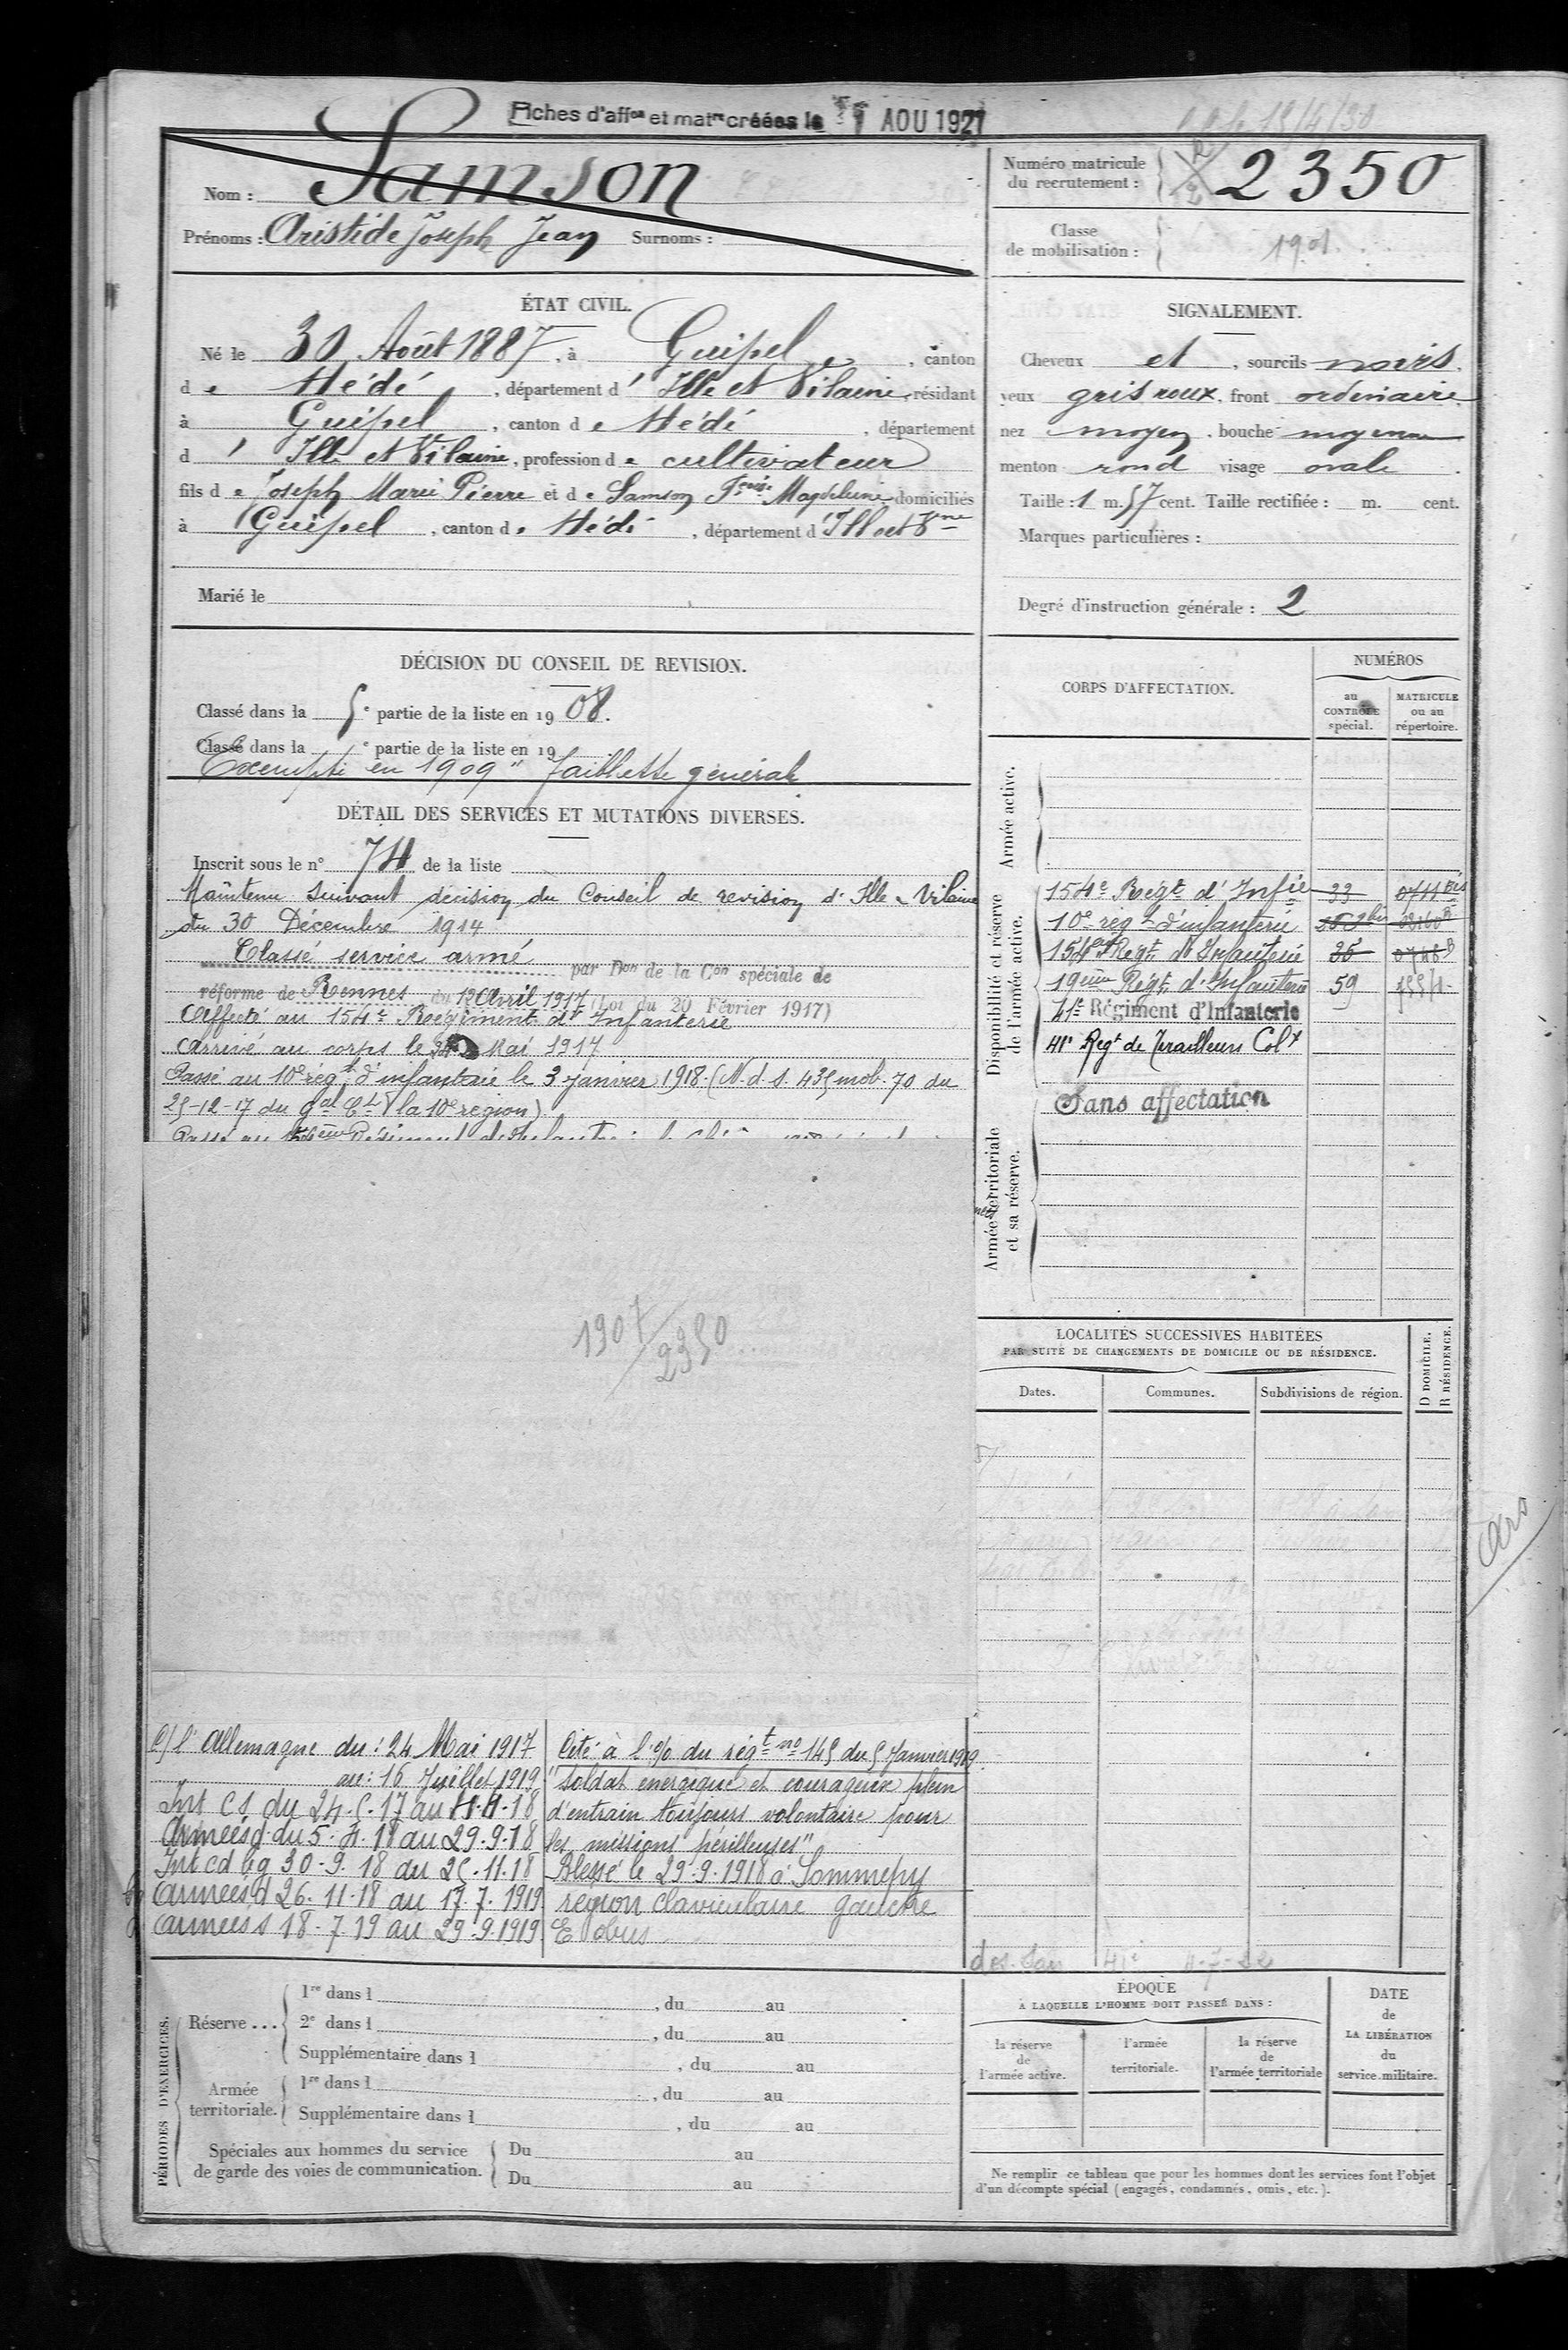 Fiches d'aff^on et mat^re créées le 1 AOU 1921
Nom : Samson
Prénoms : Aristide Joseph Jean Surnoms :
Numéro matricule du recrutement : 2350
Classe de mobilisation : 1901
ÉTAT CIVIL.
Né le 30 Août 1887, à Guipel, canton
de Hédé, département d'Ille et Vilaine, résidant
à Guipel, canton de Hédé, département
d'Ille et Vilaine, profession de cultivateur
fils de Joseph Marie Pierre et de Samson F^çoise Magdeleine domiciliés
à Guipel, canton de Hédé, département d'Ille et V^ne
Marié le
SIGNALEMENT.
Cheveux et, sourcils noirs,
yeux gris roux, front ordinaire
nez moyen, bouche moyenne
menton rond visage ovale.
Taille : 1 m. 57 cent. Taille rectifiée : m. cent.
Marques particulières :
Degré d'instruction générale : 2
DÉCISION DU CONSEIL DE REVISION.
Classé dans la 5^e partie de la liste en 1908.
Classé dans la ^e partie de la liste en 19
Exempté en 1909 " faiblesse générale
DÉTAIL DES SERVICES ET MUTATIONS DIVERSES.
Inscrit sous le n° 74 de la liste
Maintenu suivant décision du Conseil de revision d'Ille & Vilaine
du 30 Décembre 1914
Classé service armé par D^on de la C^on spéciale de
réforme de Rennes du 12 Avril 1917 (Loi du 20 Février 1917)
Affecté au 154^e Régiment d'Infanterie
Arrivé au corps le 24 Mai 1917
Passé au 10^e rég^t d'infanterie le 3 janvier 1918. (N. d. s. 435 mob. 70 du
25-12-17 du G^al C^t la 10^e région)
CORPS D'AFFECTATION.
NUMÉROS
au CONTRÔLE spécial.
MATRICULE ou au répertoire.
Armée active.
Disponibilité et réserve de l'armée active.
154^e Rég^t d'Inf^ie 33 0711 Bis
10^e rég^t d'infanterie
154^e Rég^t d'Infanterie 35 0748 B
19^ème Rég^t d'Infanterie 59
41^e Régiment d'Infanterie
41^e Reg^t de Tirailleurs Col^x
Sans affectation
Armée territoriale et sa réserve.
1907/2350
LOCALITÉS SUCCESSIVES HABITÉES
PAR SUITE DE CHANGEMENTS DE DOMICILE OU DE RÉSIDENCE.
Dates. Communes. Subdivisions de région. D DOMICILE. R RÉSIDENCE.
C/ l'Allemagne du : 24 Mai 1917
au : 16 Juillet 1919
Int CS du 24.5.17 au 4.4.18
Armées d. du 5.4.18 au 29.9.18
Int cd bg 30-9.18 au 25.11.18
Armées d 26.11.18 au 17.7.1919
Armées s 18-7 19 au 29.9.1919
Cité à l'o/o du rég^t n° 145 du 5 Janvier 1919
"Soldat énergique et courageux plein
d'entrain toujours volontaire pour
les missions périlleuses"
Blessé le 29.9.1918 à Sommepy
region claviculaire gauche
E obus
41^e 4-7-22
PÉRIODES D'EXERCICES.
Réserve... 1^re dans l , du au
2^e dans l , du au
Supplémentaire dans l , du au
Armée territoriale. 1^re dans l , du au
Supplémentaire dans l , du au
Spéciales aux hommes du service de garde des voies de communication. Du au
Du au
ÉPOQUE
À LAQUELLE L'HOMME DOIT PASSER DANS :
la réserve de l'armée active.
l'armée territoriale.
la réserve de l'armée territoriale
DATE de LA LIBÉRATION du service militaire.
Ne remplir ce tableau que pour les hommes dont les services font l'objet
d'un décompte spécial (engagés, condamnés, omis, etc.).